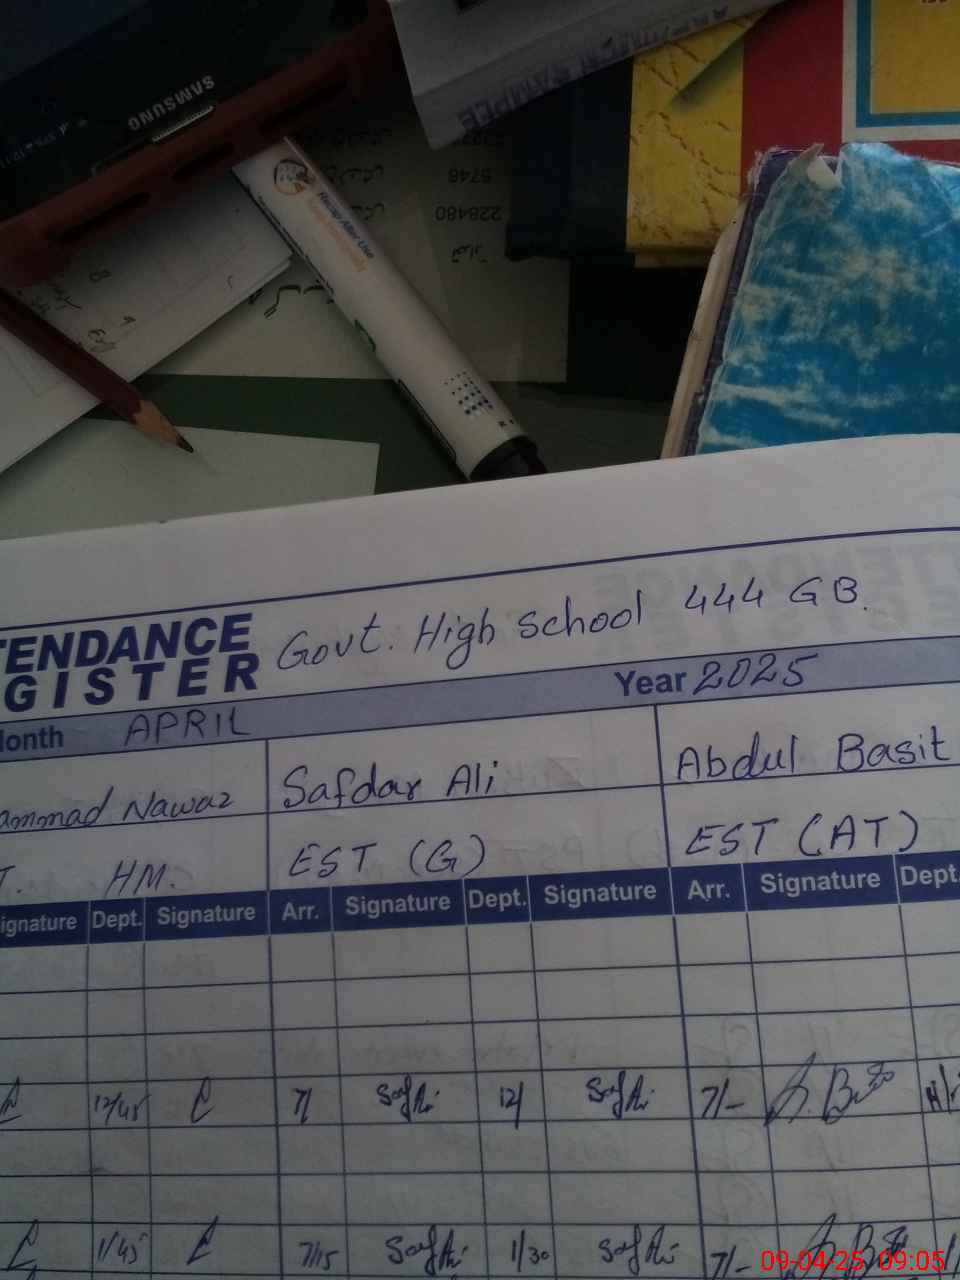 SAMSUNG
228480
5748
Please Recap After Use
TENDANCE
GISTER
Govt. High School 444 GB.
Month APRIL
Year 2025
ammad Nawaz
Safdar Ali
Abdul Basit
T. HM.
EST (G)
EST (AT)
ignature Dept. Signature Arr. Signature Dept. Signature Arr. Signature Dept.
12/45 7/ Saf Ali 12/ Saf Ali 7/-
1/45 7/15 Saf Ali 1/30 Saf Ali 7/-
09-04-25 09:05